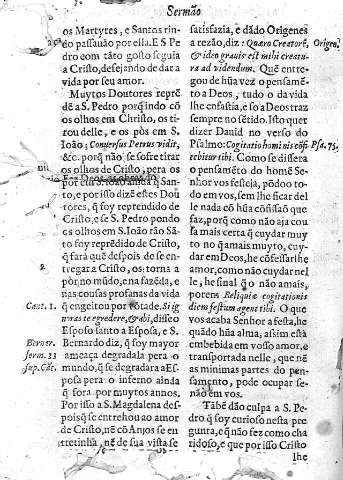 Sermão
os Martyres, e Santos rin-
do passauão por ella. E S Pe
dro com tãto gosto seguia
a Cristo, desejando de dar a
vida por seu amor.
Muytos Doutores repre̅
dẽ a S. Pedro porq̃ indo cõ
os olhos em Christo, os ti-
rou delle, e os pòs em S.
Ioão; Conuersus Petrus vidit,
&c. porq̃ não se sofre tirar
os olhos de Cristo, pera os
por em S. Ioão ainda q̃ San-
to, e por isso dizẽ estes Dou
tores, q̃ foy reprendido de
Cristo, e se S. Pedro pondo
os olhos em S. Ioão rão Sã-
to foy reprẽdido de Cristo,
q̃ farà que despois de se en-
tregar a Cristo, os torna a
por no mũdo, e na fazẽda, e
nas cousas profanas da vida
Cant. 1.
q̃ engeitou por võtade. Si ig
noras te egredere, & abi, disse o
Esposo santo a Esposa, e S.
Berner.
serm. 33
sup. Cãt.
Bernardo diz, q̃ foy mayor
ameaça degradala pera o
mundo, q̃ se degradara a Es
posa pera o inferno ainda
q̃ fora por muytos annos.
Por isso a S. Magdalena des-
pois q̃ se entrehou ao amor
de Cristo, nẽ cõ Anjos se en
tretinha, nẽ de sua vista se
satisfazia, e dãdo Origenes
a rezão, diz: Quæro Creatorẽ,
Origen.
& ideo grauis est mihi creatu-
ra ad videndum. Quẽ entre-
gou de hũa vez o pensamẽ-
to a Deos, tudo o da vida
lhe enfastia, e só a Deos traz
sempre no sẽtido. Isto quer
dizer Dauid no verso do
Psalmo: Cogitatio hominis cõfi
Psa. 75.
tebitur tibi. Como se dissera
o pensamẽto do homẽ Se-
nhor vos festeja, põdo o to-
do em vos, sem lhe ficar del
le nada cõ hũa cõfissaõ que
faz, porq̃ como não aja cou
sa mais certa q̃ cuydar muy
to no q̃ amais muyto, cuy-
dar em Deos, he cõfessarlhe
amor, como não cuydar nel
le, he sinal q̃ o não amais,
porem Reliquiæ cogitationis
diem festum agent tibi. O que
vos acaba Senhor a festa, he
quãdo hũa alma, assim està
embebida em vosso amor, e
transportada nelle, que nẽ
as minimas partes do pen-
samento, pode ocupar se-
não em vos.
Tãbẽ dão culpa a S. Pe
dro q̃ soy curioso nesta pre
gunta, e q̃ não fez como cha
ridoso, e que por isso Cristo
lhe